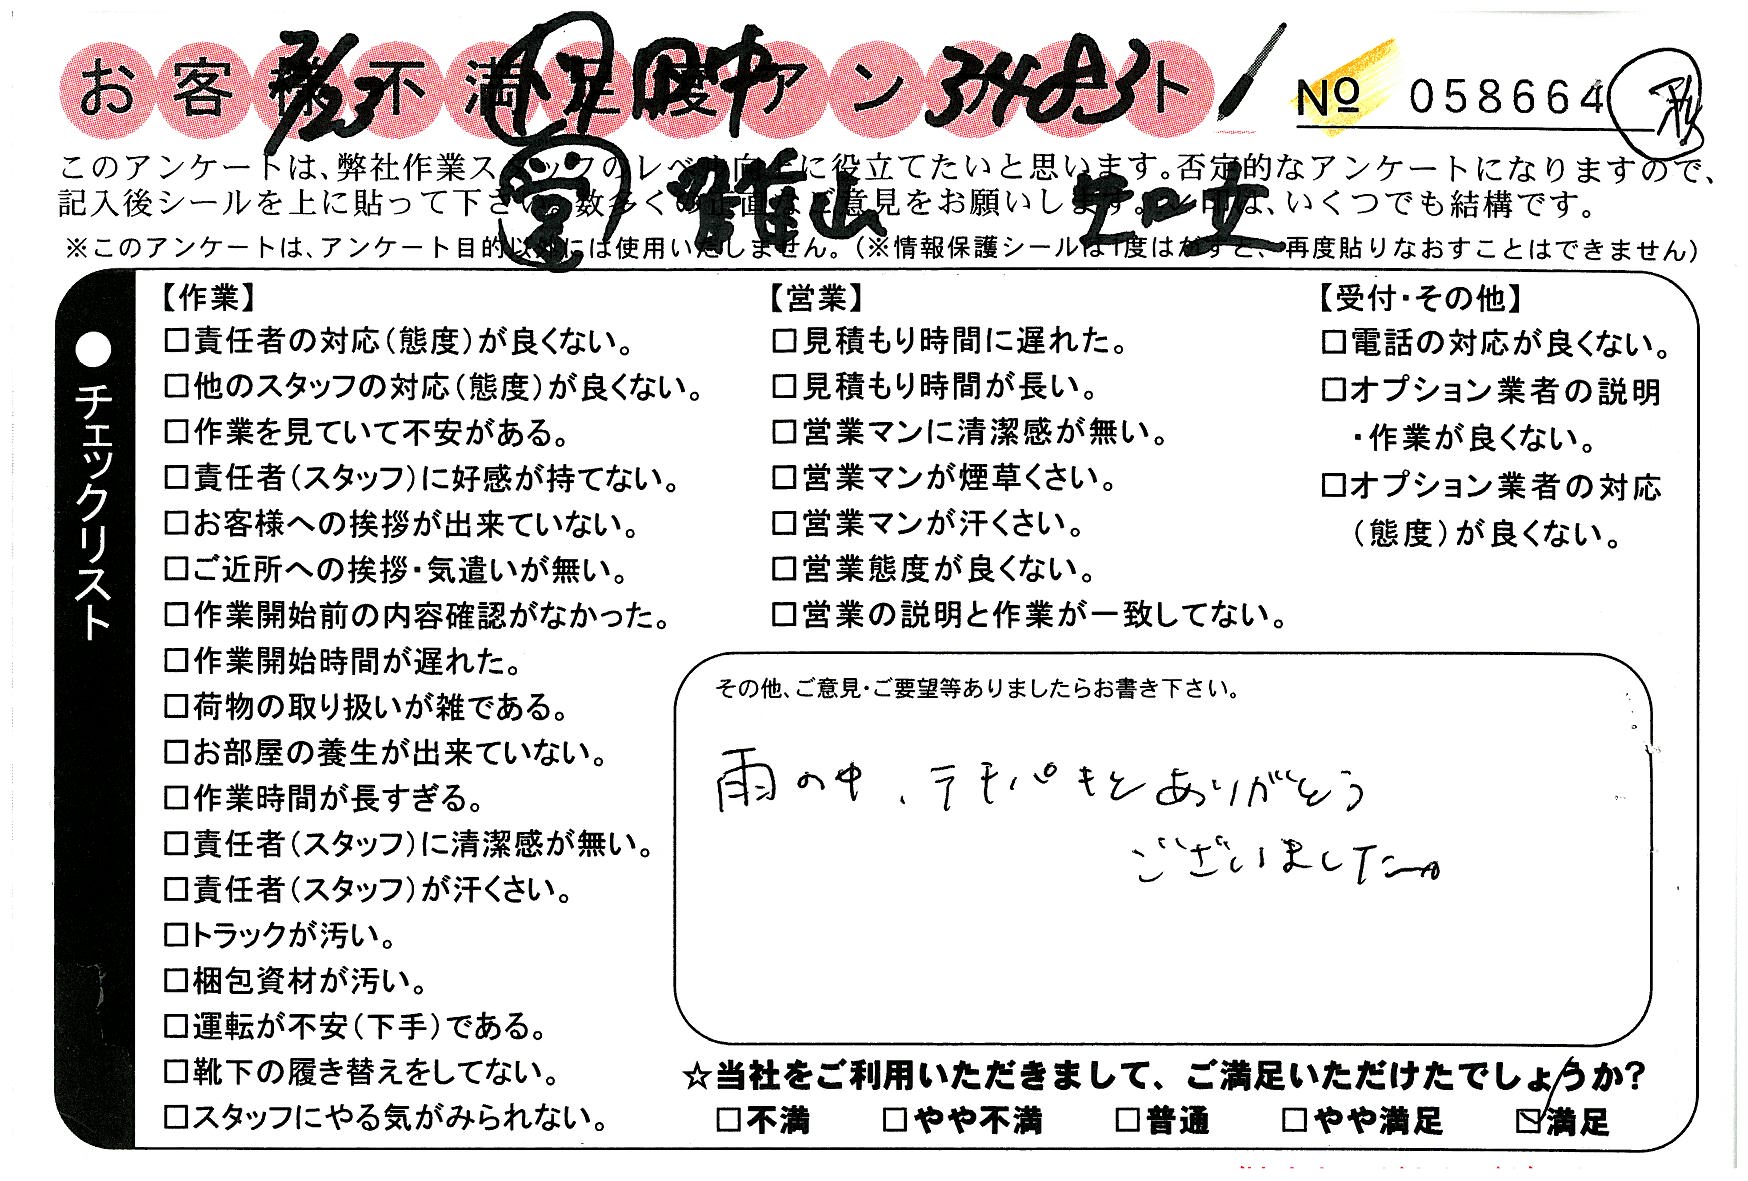 お客様不満足度アンケート
7/23
田中
34831
№ 058664
このアンケートは、弊社作業スタッフのレベル向上に役立てたいと思います。否定的なアンケートになりますので、
記入後シールを上に貼って下さい。数多くの正直なご意見をお願いします。レ印は、いくつでも結構です。
営
※このアンケートは、アンケート目的以外には使用いたしません。（※情報保護シールは1度はがすと、再度貼りなおすことはできません）
●チェックリスト
【作業】
□責任者の対応（態度）が良くない。
□他のスタッフの対応（態度）が良くない。
□作業を見ていて不安がある。
□責任者（スタッフ）に好感が持てない。
□お客様への挨拶が出来ていない。
□ご近所への挨拶・気遣いが無い。
□作業開始前の内容確認がなかった。
□作業開始時間が遅れた。
□荷物の取り扱いが雑である。
□お部屋の養生が出来ていない。
□作業時間が長すぎる。
□責任者（スタッフ）に清潔感が無い。
□責任者（スタッフ）が汗くさい。
□トラックが汚い。
□梱包資材が汚い。
□運転が不安（下手）である。
□靴下の履き替えをしてない。
□スタッフにやる気がみられない。
【営業】
□見積もり時間に遅れた。
□見積もり時間が長い。
□営業マンに清潔感が無い。
□営業マンが煙草くさい。
□営業マンが汗くさい。
□営業態度が良くない。
□営業の説明と作業が一致してない。
【受付・その他】
□電話の対応が良くない。
□オプション業者の説明
・作業が良くない。
□オプション業者の対応
（態度）が良くない。
その他、ご意見・ご要望等ありましたらお書き下さい。
雨の中、テキパキとありがとう
ございました。
☆当社をご利用いただきまして、ご満足いただけたでしょうか？
□不満 □やや不満 □普通 □やや満足 ☑満足